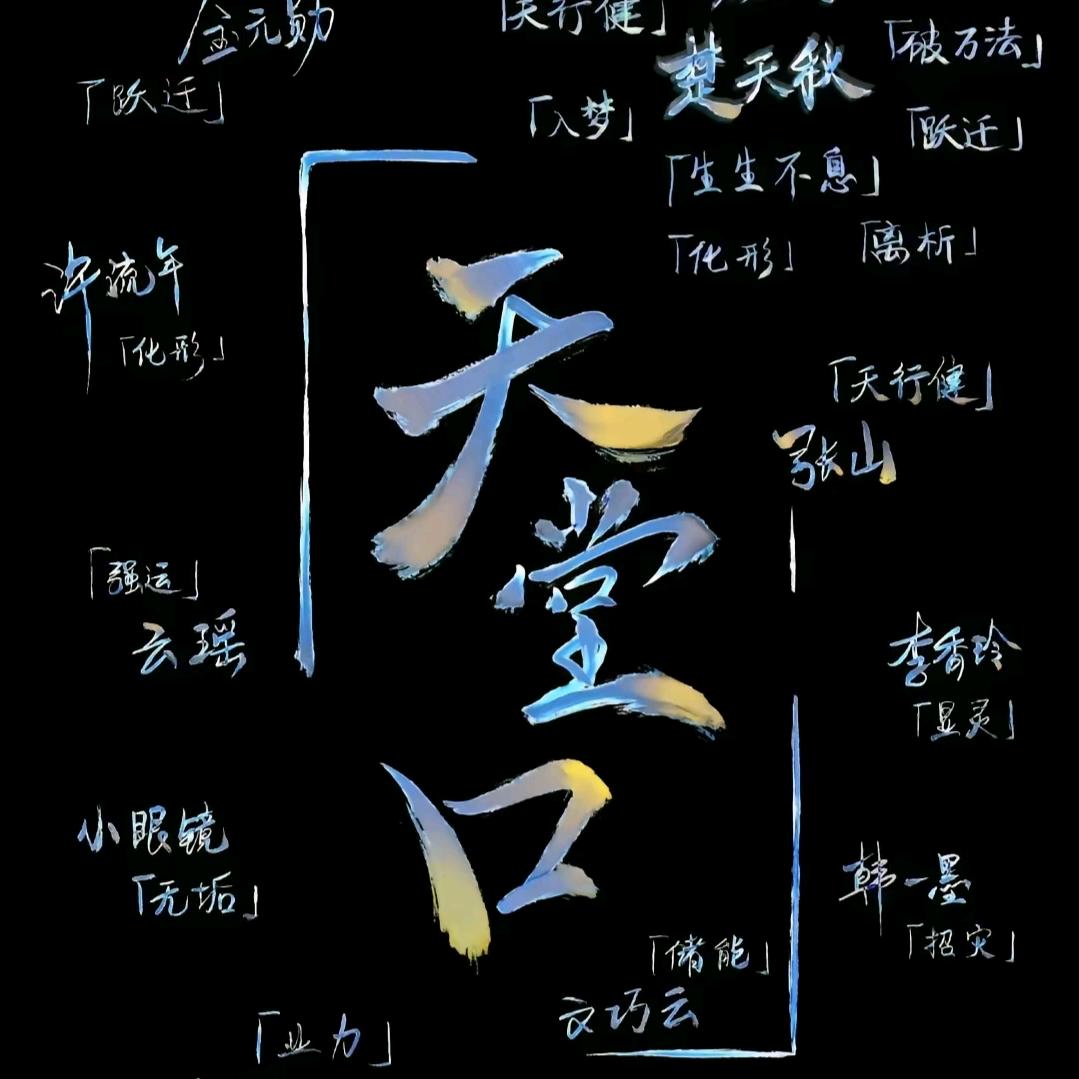 金元勋
「跃迁」
「天行健」
楚天秋
「破万法」
「入梦」
「跃迁」
「生生不息」
「化形」
「离析」
许流年
「化形」
「天行健」
张山
「强运」
云瑶
天堂口
李香玲
「显灵」
小眼镜
「无垢」
韩一墨
「招灾」
「储能」
文巧云
「业力」